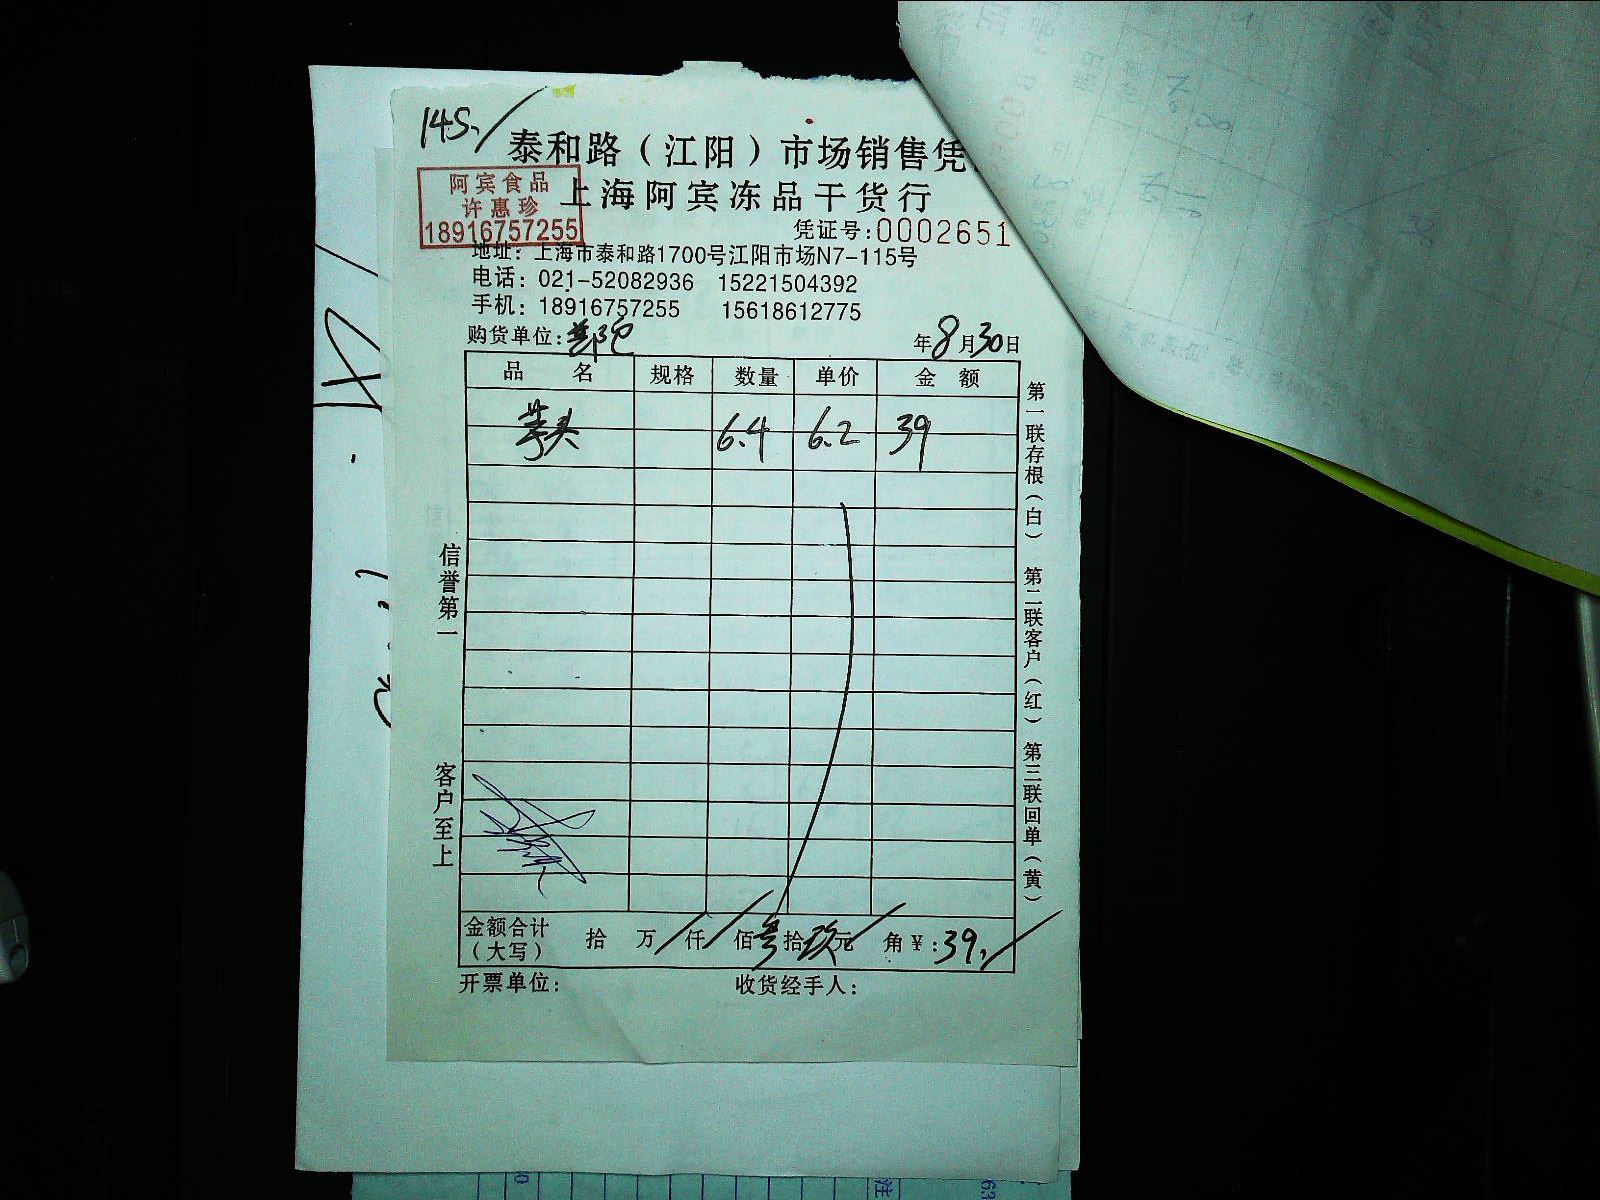 145
泰和路（江阳）市场销售凭
上海阿宾冻品干货行
阿宾食品
许惠珍
18916757255
凭证号:0002651
地址：上海市泰和路1700号江阳市场N7-115号
电话：021-52082936 15221504392
手机：18916757255 15618612775
购货单位:
年8月30日
品 名 规格 数量 单价 金 额
芋头 6.4 6.2 39
第一联存根（白） 第二联客户（红） 第三联回单（黄）
信誉第一
客户至上
金额合计（大写） 拾 万 仟 佰叁拾玖元 角¥:39
开票单位: 收货经手人: